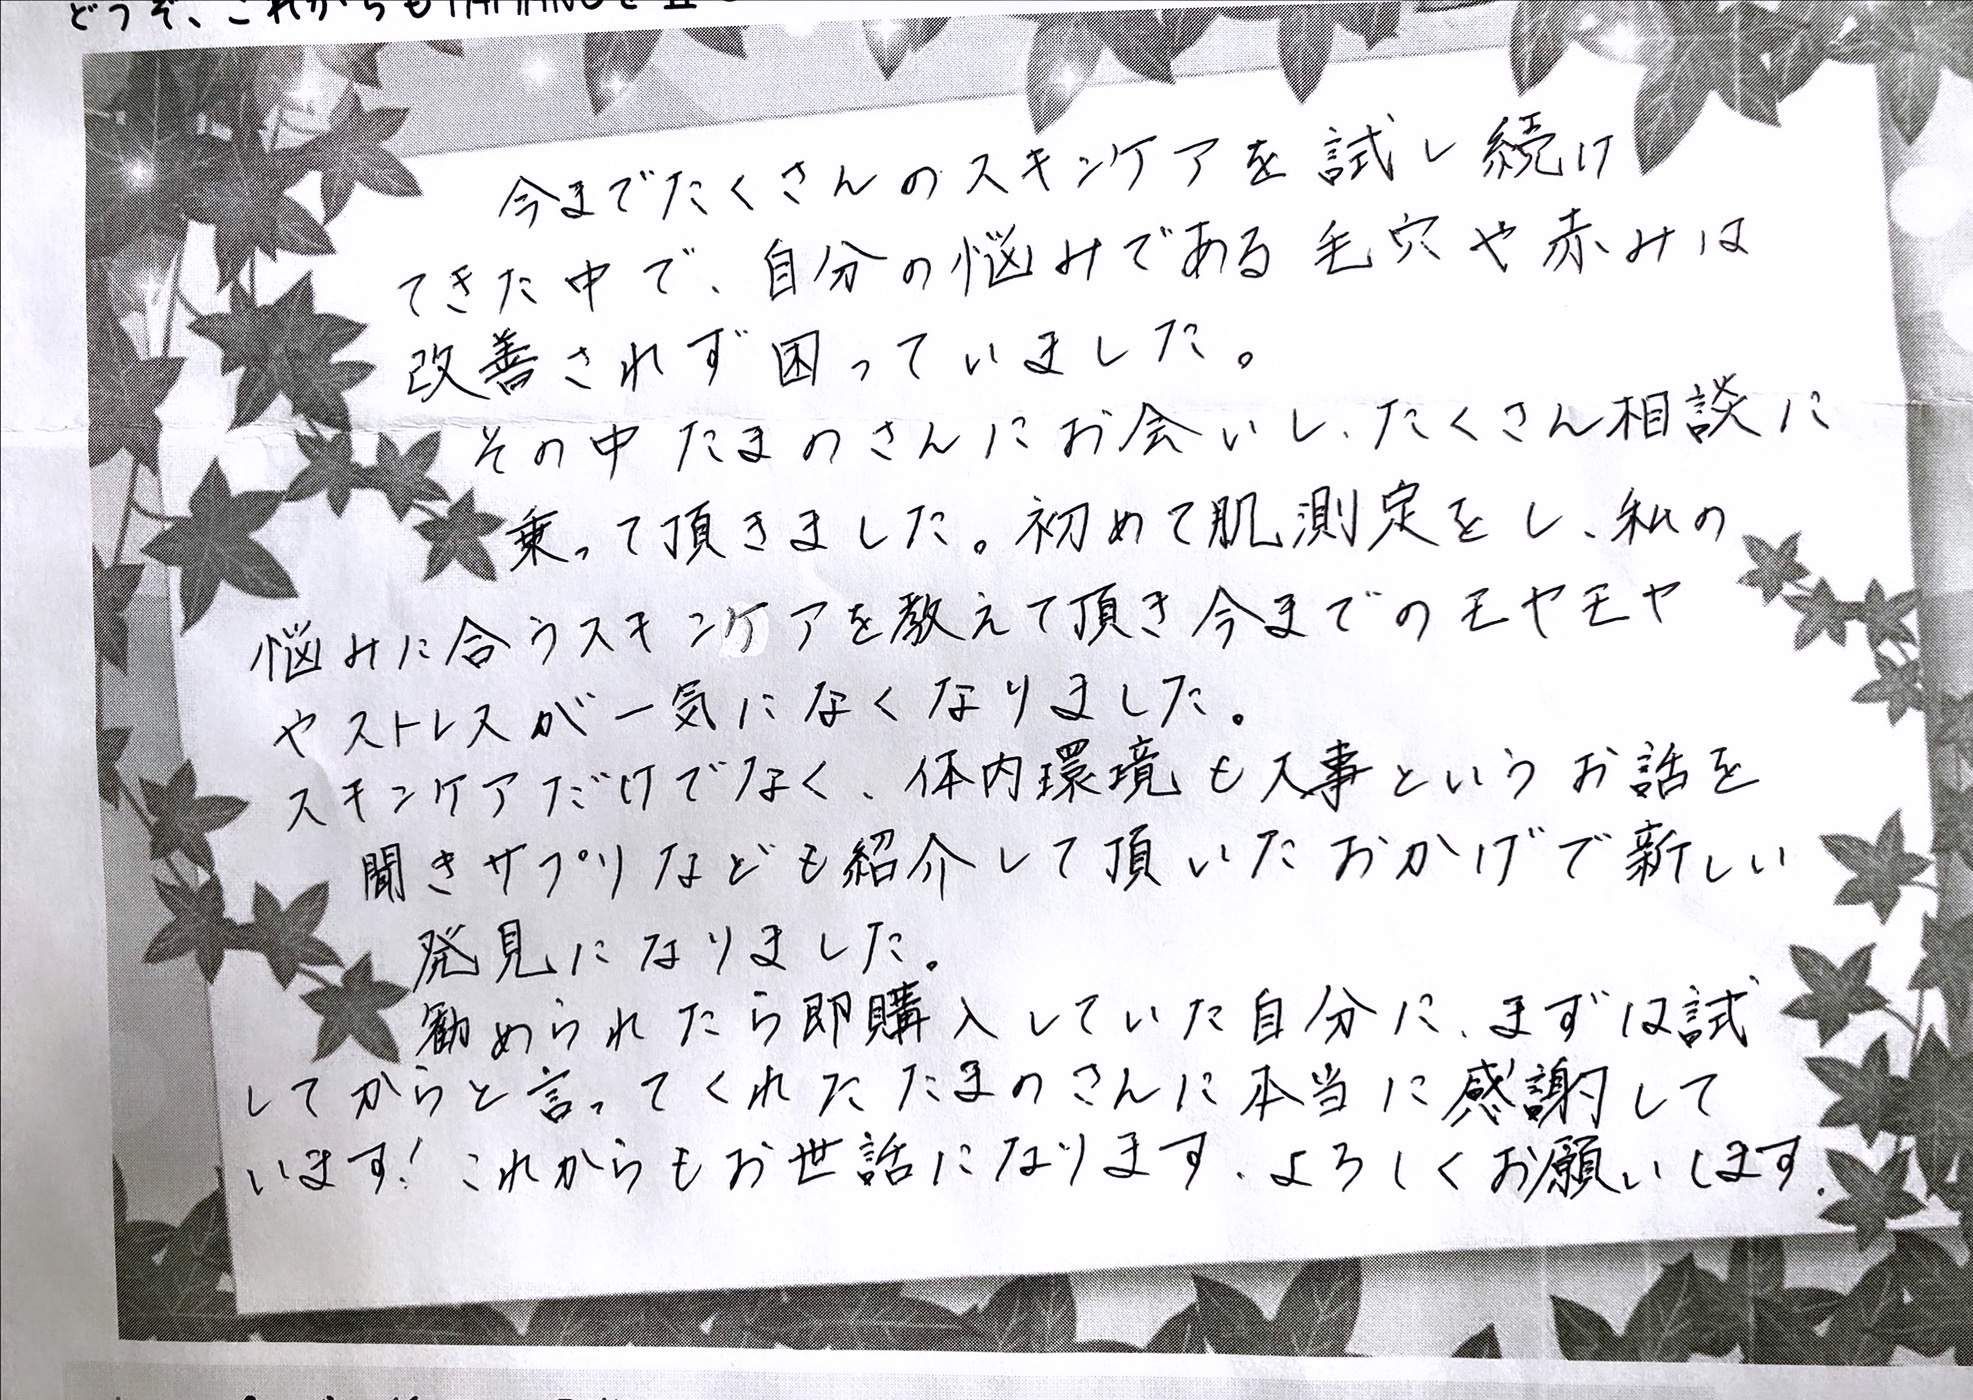 どうぞ、これからもTAMANOを
今までたくさんのスキンケアを試し続け
てきた中で、自分の悩みである毛穴や赤みは
改善されず困っていました。
その中たまのさんにお会いし、たくさん相談に
乗って頂きました。初めて肌測定をし、私の
悩みに合うスキンケアを教えて頂き今までのモヤモヤ
やストレスが一気になくなりました。
スキンケアだけでなく、体内環境も大事というお話を
聞きサプリなども紹介して頂いたおかげで新しい
発見になりました。
勧められたら即購入していた自分に、まずは試
してからと言ってくれたたまのさんに本当に感謝して
います!これからもお世話になります。よろしくお願いします。